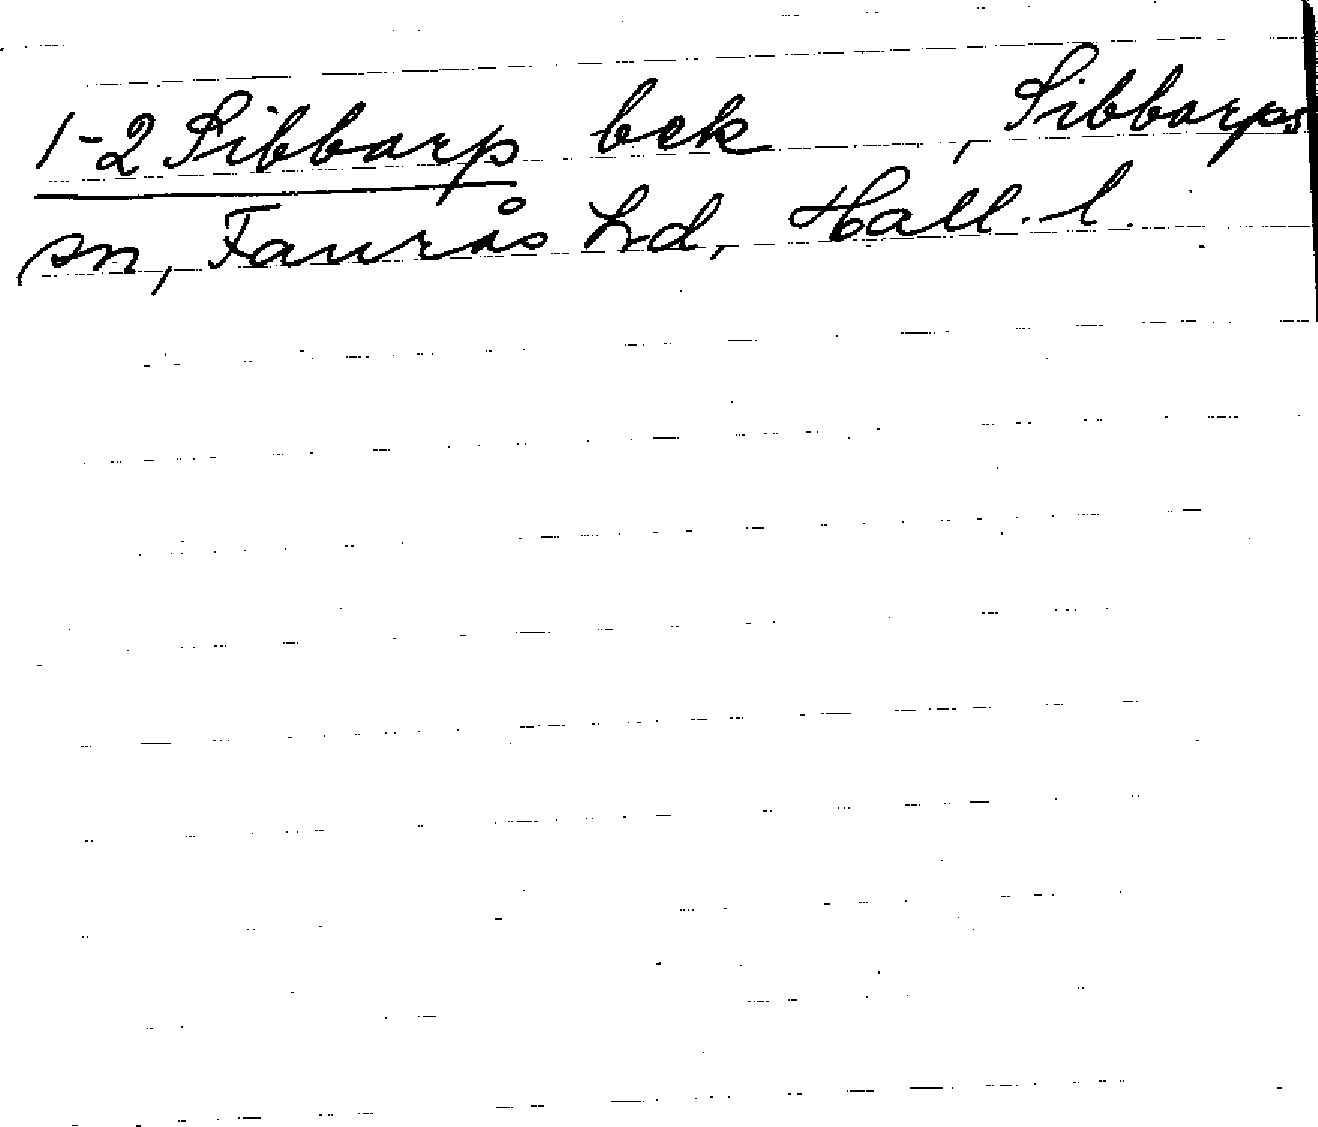 1-2 Sibbarp bek , Sibbarps
sn, Faurås hd, Hall. l.